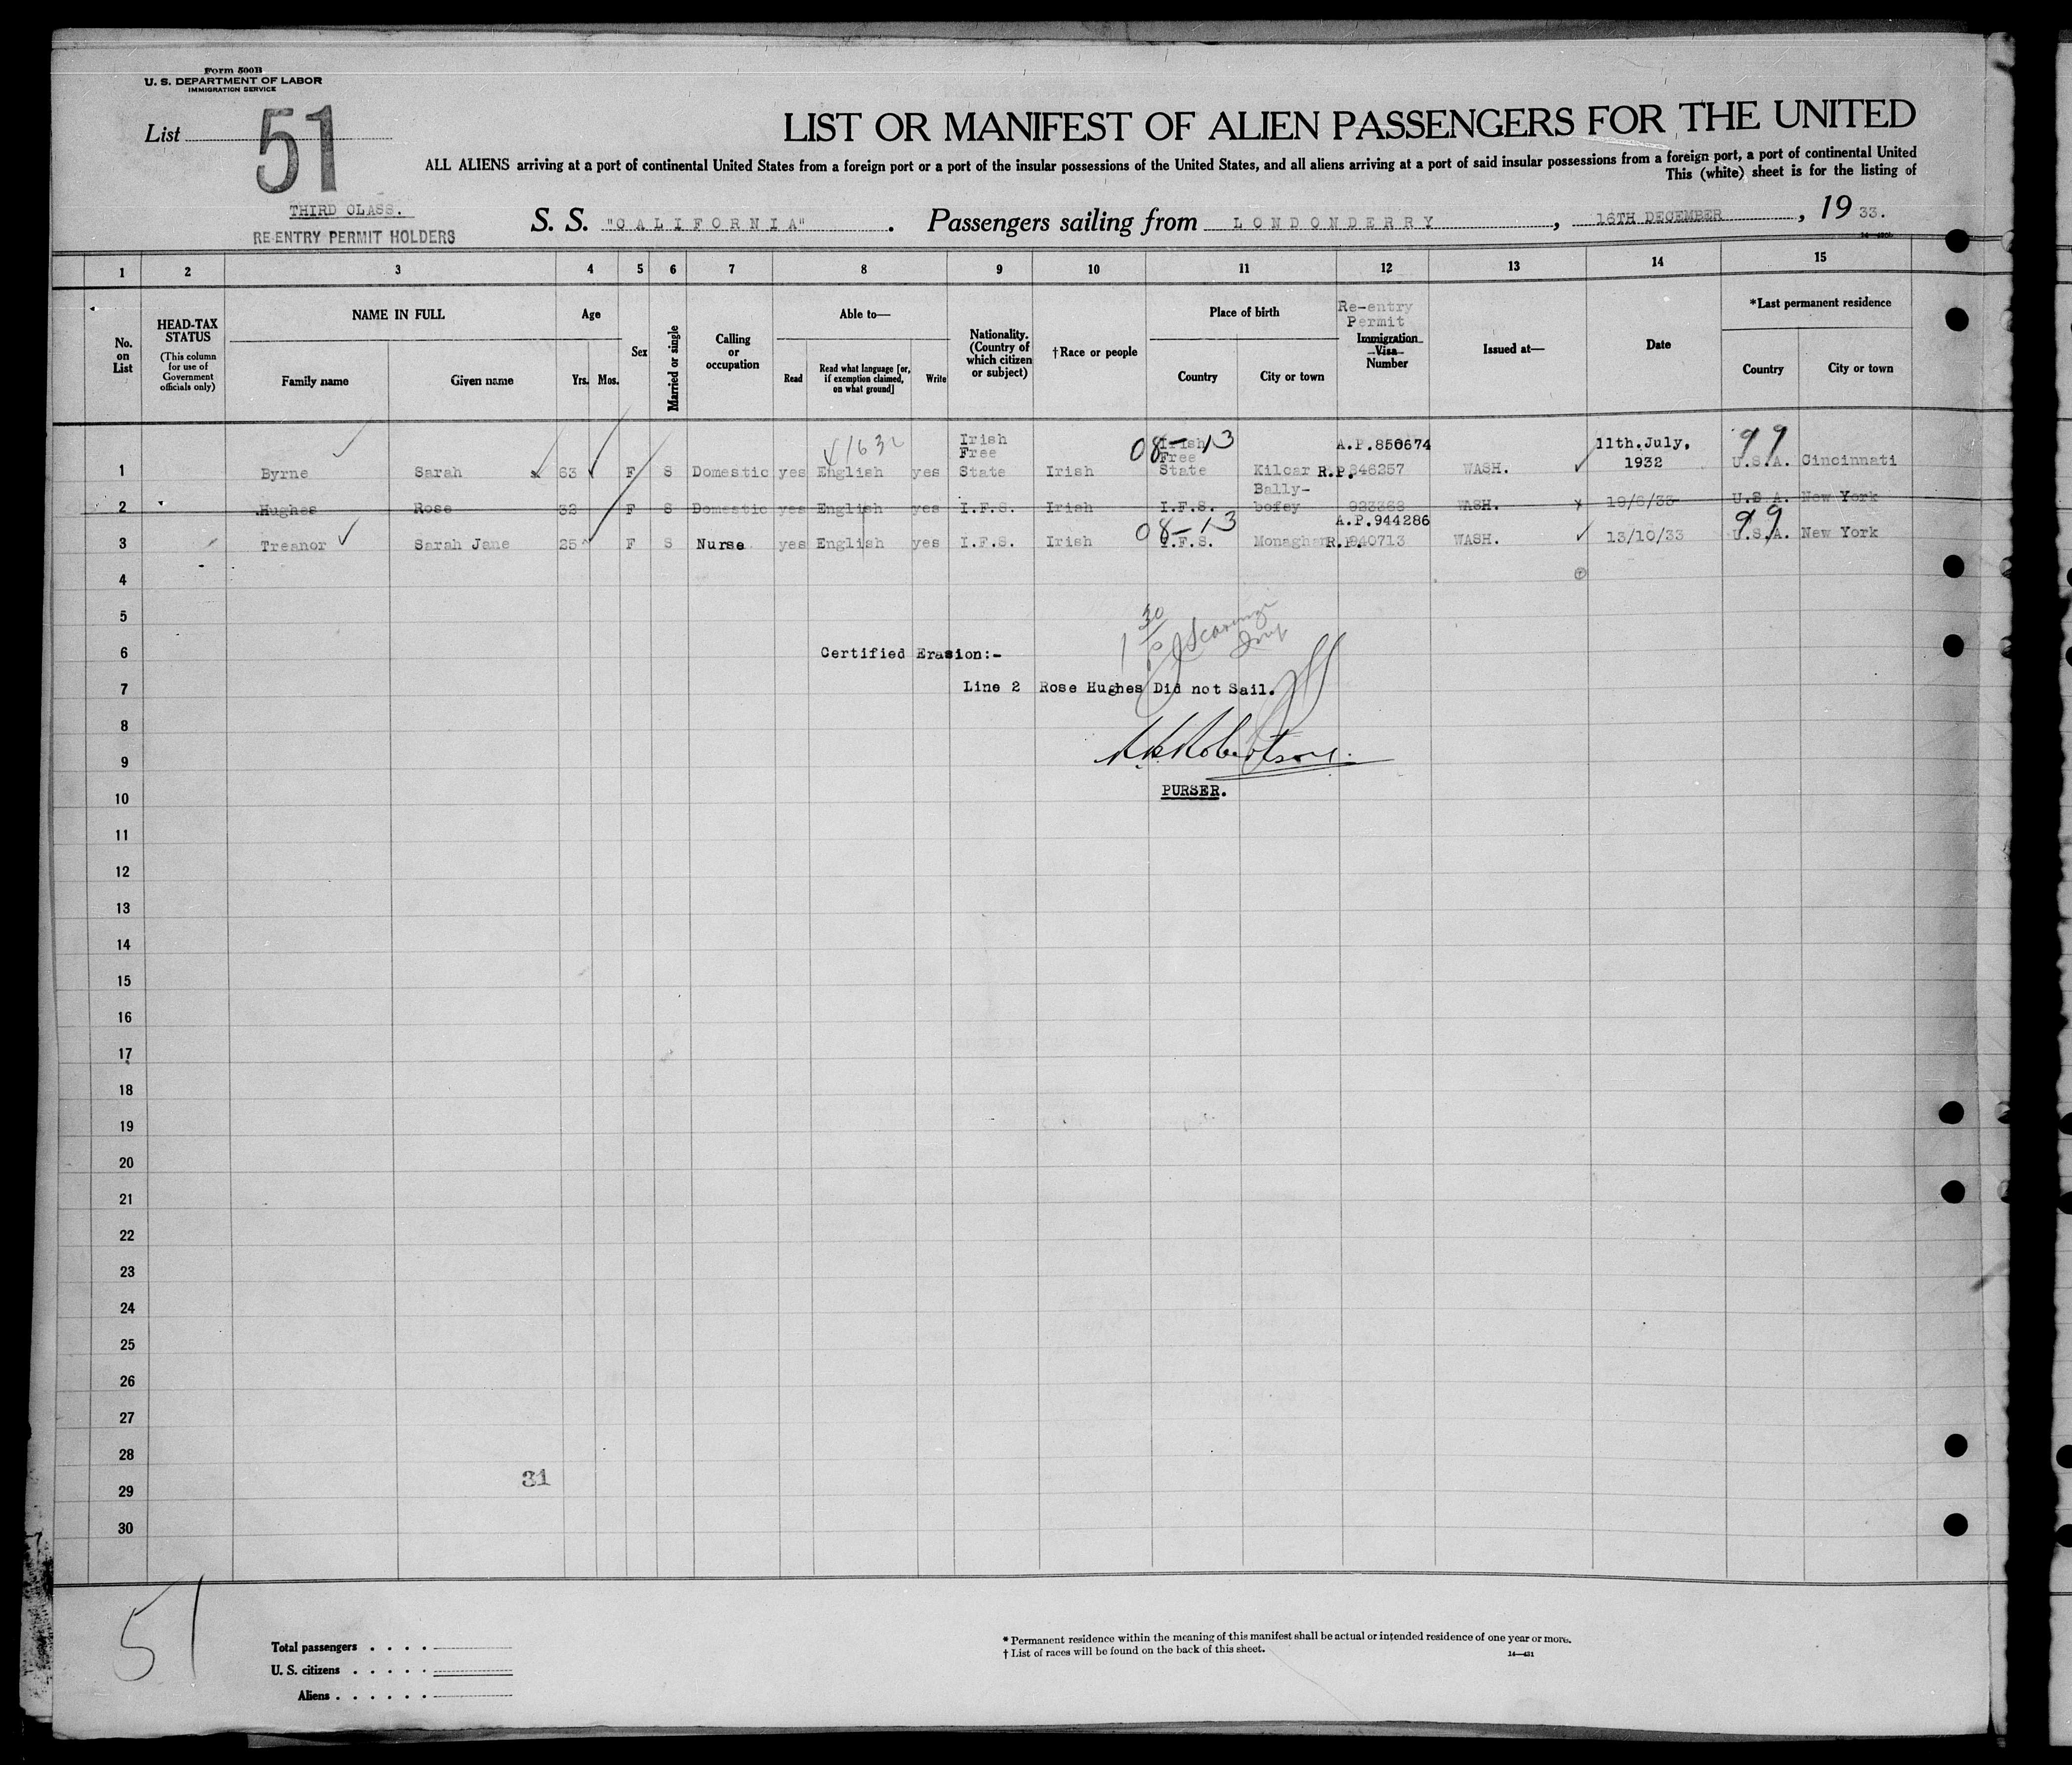 Form 500B
U. S. DEPARTMENT OF LABOR
IMMIGRATION SERVICE
List 51
LIST OR MANIFEST OF ALIEN PASSENGERS FOR THE UNITED
ALL ALIENS arriving at a port of continental United States from a foreign port or a port of the insular possessions of the United States, and all aliens arriving at a port of said insular possessions from a foreign port, a port of continental United
This (white) sheet is for the listing of
THIRD CLASS.
RE-ENTRY PERMIT HOLDERS
S. S. "CALIFORNIA" . Passengers sailing from LONDONDERRY , 16TH DECEMBER , 19 33.
1 2 3 4 5 6 7 8 9 10 11 12 13 14 15
No. on List
HEAD-TAX STATUS
(This column for use of Government officials only)
NAME IN FULL
Family name Given name
Age
Yrs. Mos.
Sex
Married or single
Calling or occupation
Able to—
Read
Read what language [or, if exemption claimed, on what ground]
Write
Nationality. (Country of which citizen or subject)
†Race or people
Place of birth
Country City or town
Re-entry Permit
Immigration Visa Number
Issued at—
Date
*Last permanent residence
Country City or town
1632 08-13 99
1 Byrne Sarah 63 F S Domestic yes English yes Irish Free State Irish Irish Free State Kilcar A.P.850674 R.P.846257 WASH. 11th.July, 1932 U.S.A. Cincinnati
2 Hughes Rose 32 F S Domestic yes English yes I.F.S. Irish I.F.S. Bally-bofey 923368 WASH. 19/6/33 U.S.A. New York
08-13 99
3 Treanor Sarah Jane 25 F S Nurse yes English yes I.F.S. Irish I.F.S. Monaghan A.P.944286 R.P.940713 WASH. 13/10/33 U.S.A. New York
4
5
6 Certified Erasion:-
7 Line 2 Rose Hughes Did not Sail.
8
9 Robertson
10 PURSER.
11
12
13
14
15
16
17
18
19
20
21
22
23
24
25
26
27
28
31
29
30
51
Total passengers . . . .
U. S. citizens . . . . .
Aliens . . . . . .
* Permanent residence within the meaning of this manifest shall be actual or intended residence of one year or more.
† List of races will be found on the back of this sheet.
14—431